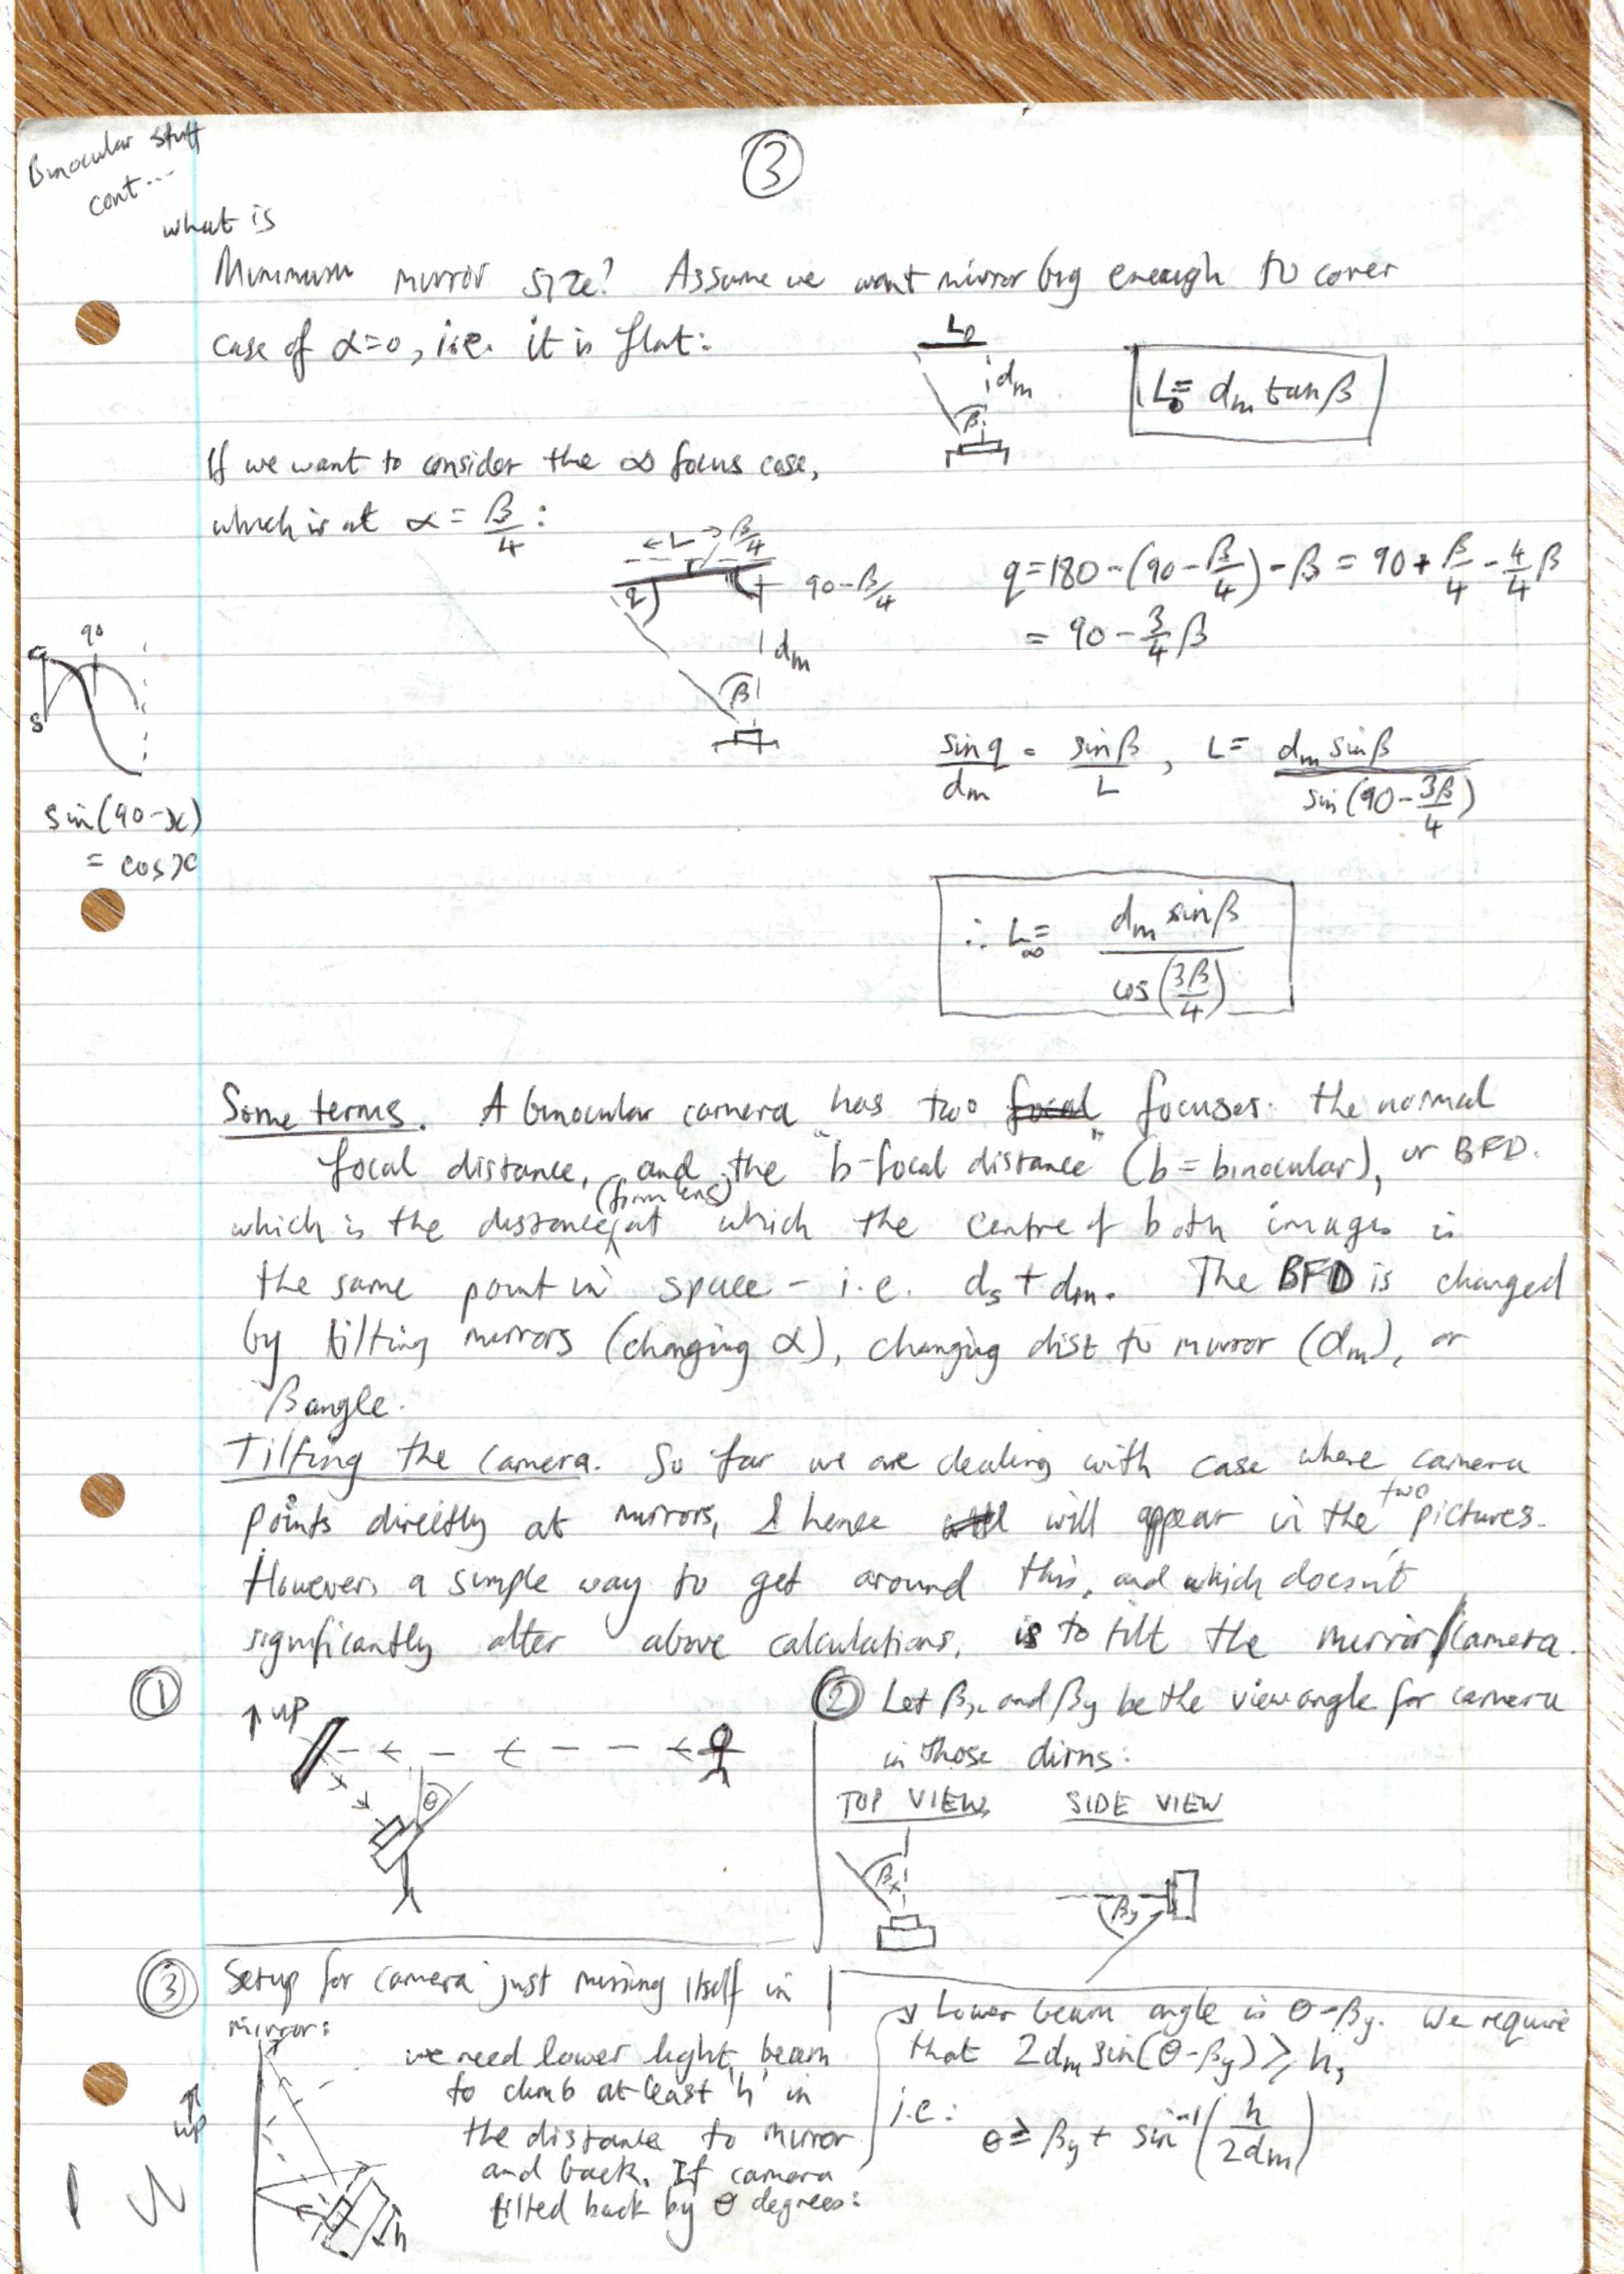 Binocular stuff
cont...
③
what is
Minimum mirror size? Assume we want mirror big enough to cover
case of α=0, i.e. it is flat:
L₀
dm
β
L₀ = dm tanβ
If we want to consider the ∞ focus case,
which is at α = β/4 :
← L → β/4
q
90-β/4
dm
β
q = 180 - (90 - β/4) - β = 90 + β/4 - 4/4 β
= 90 - 3/4 β
90
c
s
sin(90-x)
= cos x
sin q / dm = sin β / L , L = dm sin β / sin(90 - 3β/4)
∴ L∞ = dm sin β / cos(3β/4)
Some terms. A binocular camera has two focuses: the normal
focal distance, and the "b-focal distance" (b = binocular), or BFD.
which is the distance (from lens) at which the centre of both images is
the same point in space - i.e. ds + dm. The BFD is changed
by tilting mirrors (changing α), changing dist to mirror (dm), or
β angle.
Tilting the camera. So far we are dealing with case where camera
points directly at mirrors, & hence will appear in the two pictures.
However, a simple way to get around this, and which doesn't
significantly alter above calculations, is to tilt the mirror/camera.
①
↑ UP
θ
② Let βx and βy be the view angle for camera
in those dirns:
TOP VIEW SIDE VIEW
βx
βy
③ Setup for camera just missing itself in
mirror:
↑ up
h
we need lower light beam
to climb at least 'h' in
the distance to mirror
and back. If camera
tilted back by θ degrees:
Lower beam angle is θ-βy. We require
that 2dm sin(θ-βy) ≥ h,
i.e:
θ ≥ βy + sin⁻¹(h/2dm)